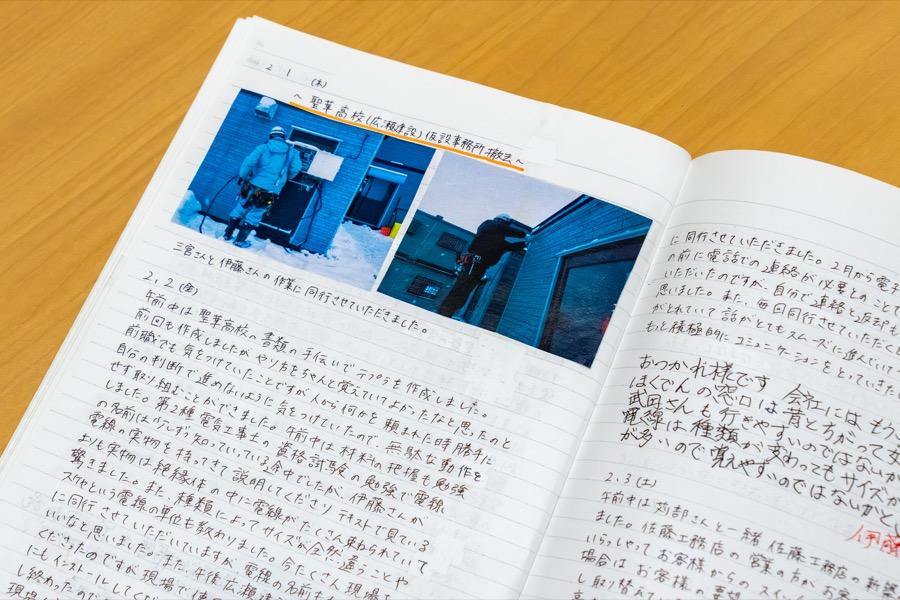 2.1 (木)
~ 聖華高校(広瀬建設)仮設事務所撤去~
三宮さんと伊藤さんの作業に同行させていただきました。
2.2(金)
午前中は聖華高校の書類の手伝いでテプラを作成しました。
前回も作成しましたがやり方をちゃんと覚えていてよかったなと思ったのと
前職でも気をつけていたことですが人から何かを頼まれた時勝手に
自分の判断で進めないように気をつけていたので、無駄な動作を
せず取り組むことができました。午前中は材料の把握も勉強
しました。第2種電気工事士の資格試験の勉強で電線
の名前は少しずつ知っていっている今中でしたが、伊藤さんが
電線の実物を持ってきて説明してくださりテキストで見ている
よりも実物は絶縁体の中に電線がたくさん束ねられていて
驚きました。また、種類によってサイズが全然違うことや
スケという電線の単位も教わりました。今たくさん現場
に同行させていただいていますが、電線の名前も
いいなと思いました。また午後広瀬建
くださったのですが現場で
にもインストールしてくだ
し終わったので
に同行させていただきました。2月から電
の前に電話での連絡が必要とのことで
いただいたのですが、自分で連絡と
思いました。また、毎回同行させていただく
がとれていて話がとてもスムーズに進んでいて
もっと積極的にコミュニケーションをとっていきた
おつかれ様です 会社にはもう
ほくでんの窓口は昔と方が
武田さんも行きやすいのではないか
電線は種類が変わってもサイズが
が多いので覚えやすいのではないかと
伊藤
2.3(土)
午前中は苅部さんと一緒に佐藤工務店の新築
ました。佐藤工務店の営業の方が、お客
いらっしゃってお客様からの スイッチ
場合は お客様の要望
し取り替えて